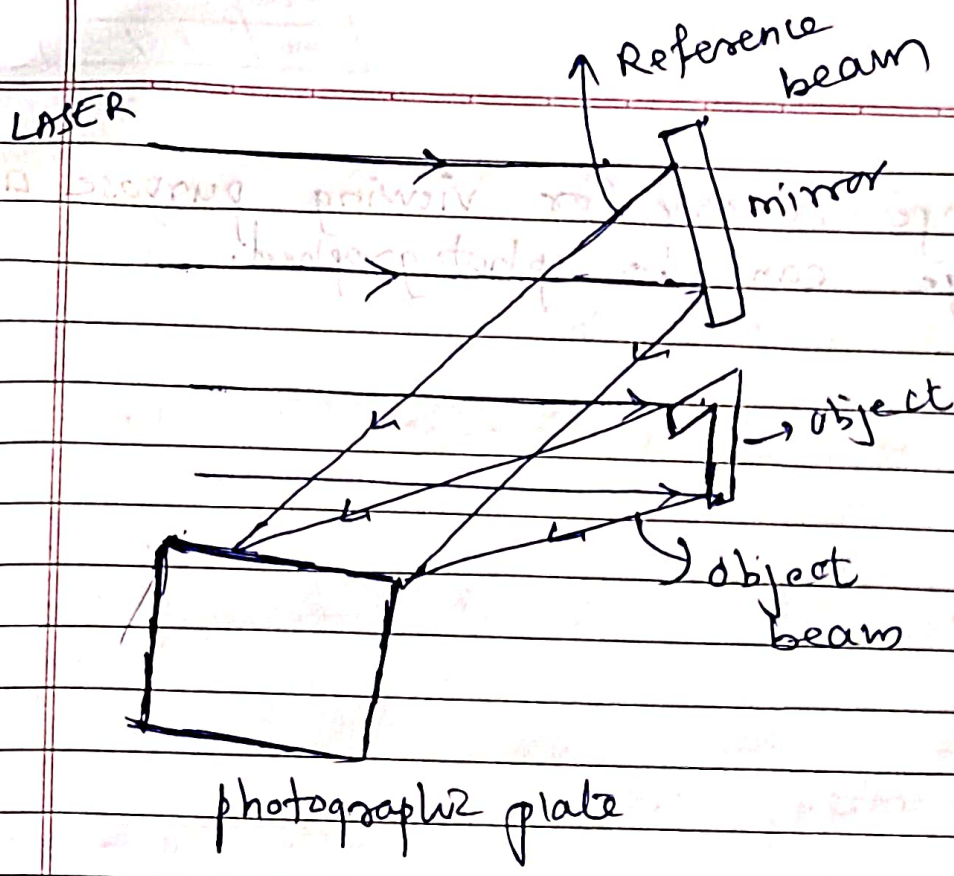 Reference
beam
LASER
mirror
object
object
beam
photographic plate